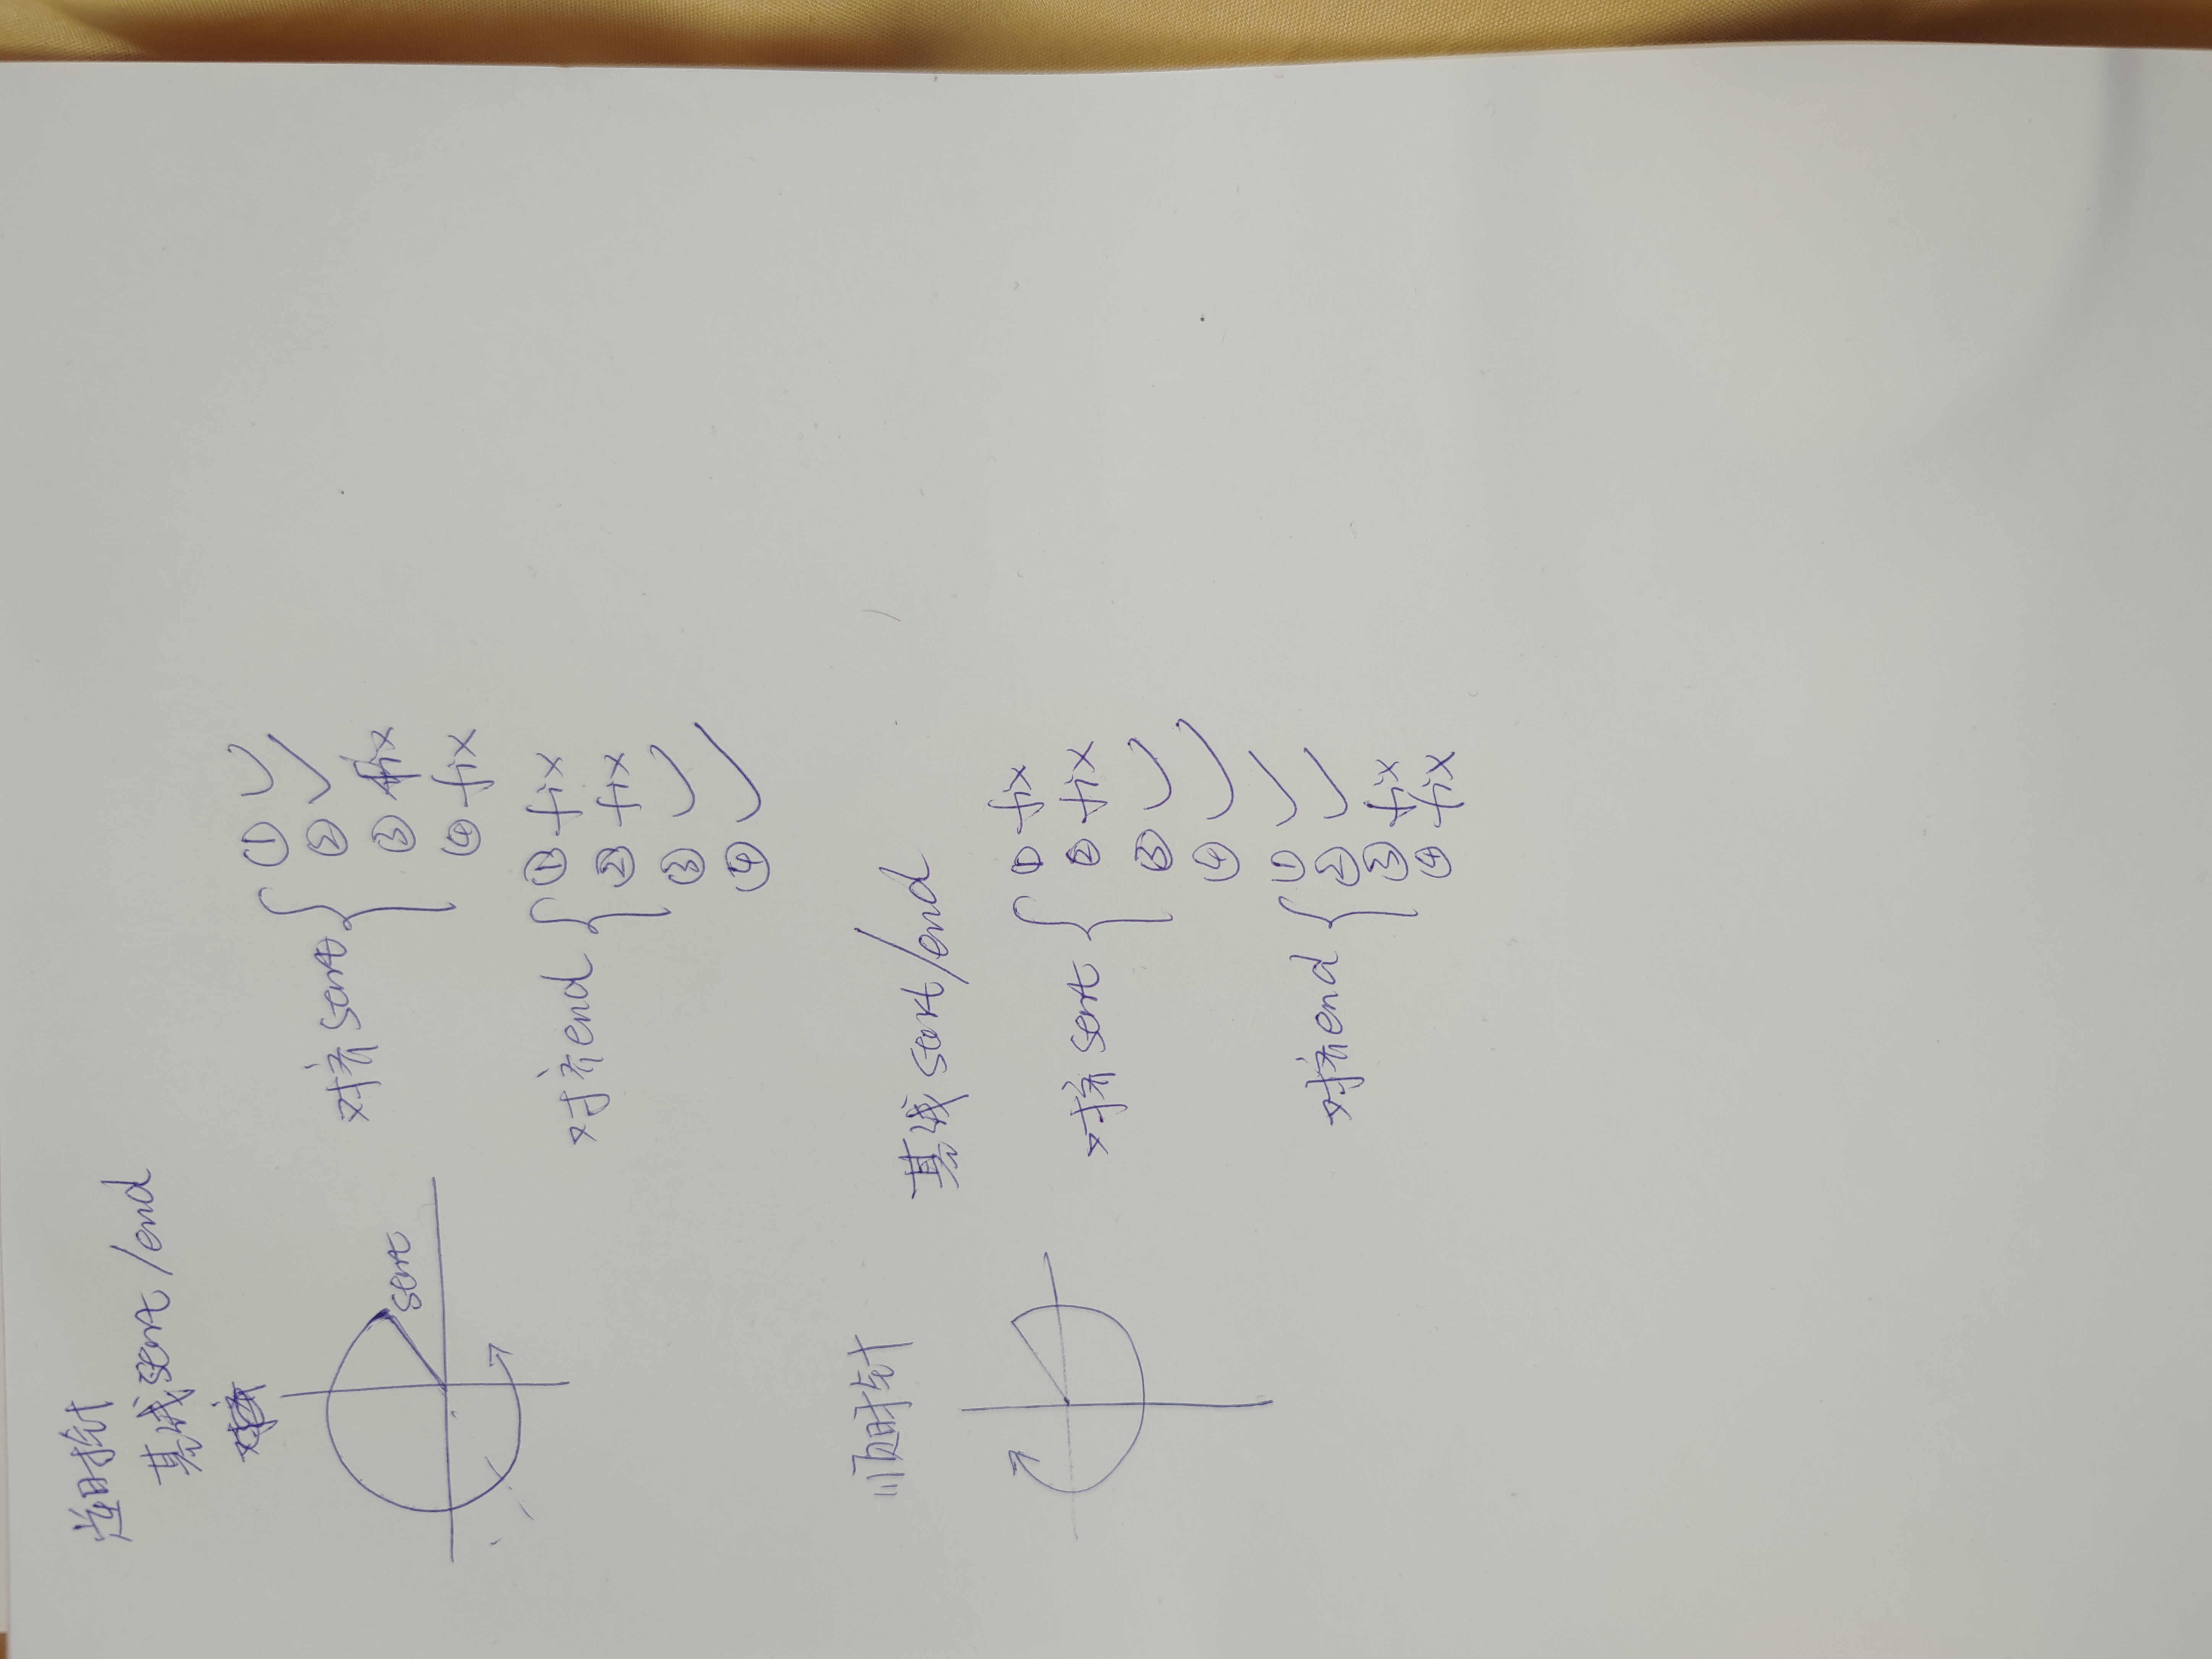 逆时针
基线start/end
start
对齐start
① ✓
② ✓
③ fix
④ fix
对齐end
① fix
② fix
③ ✓
④ ✓
顺时针
基线start/end
对齐start
① fix
② fix
③ ✓
④ ✓
对齐end
① ✓
② ✓
③ fix
④ fix